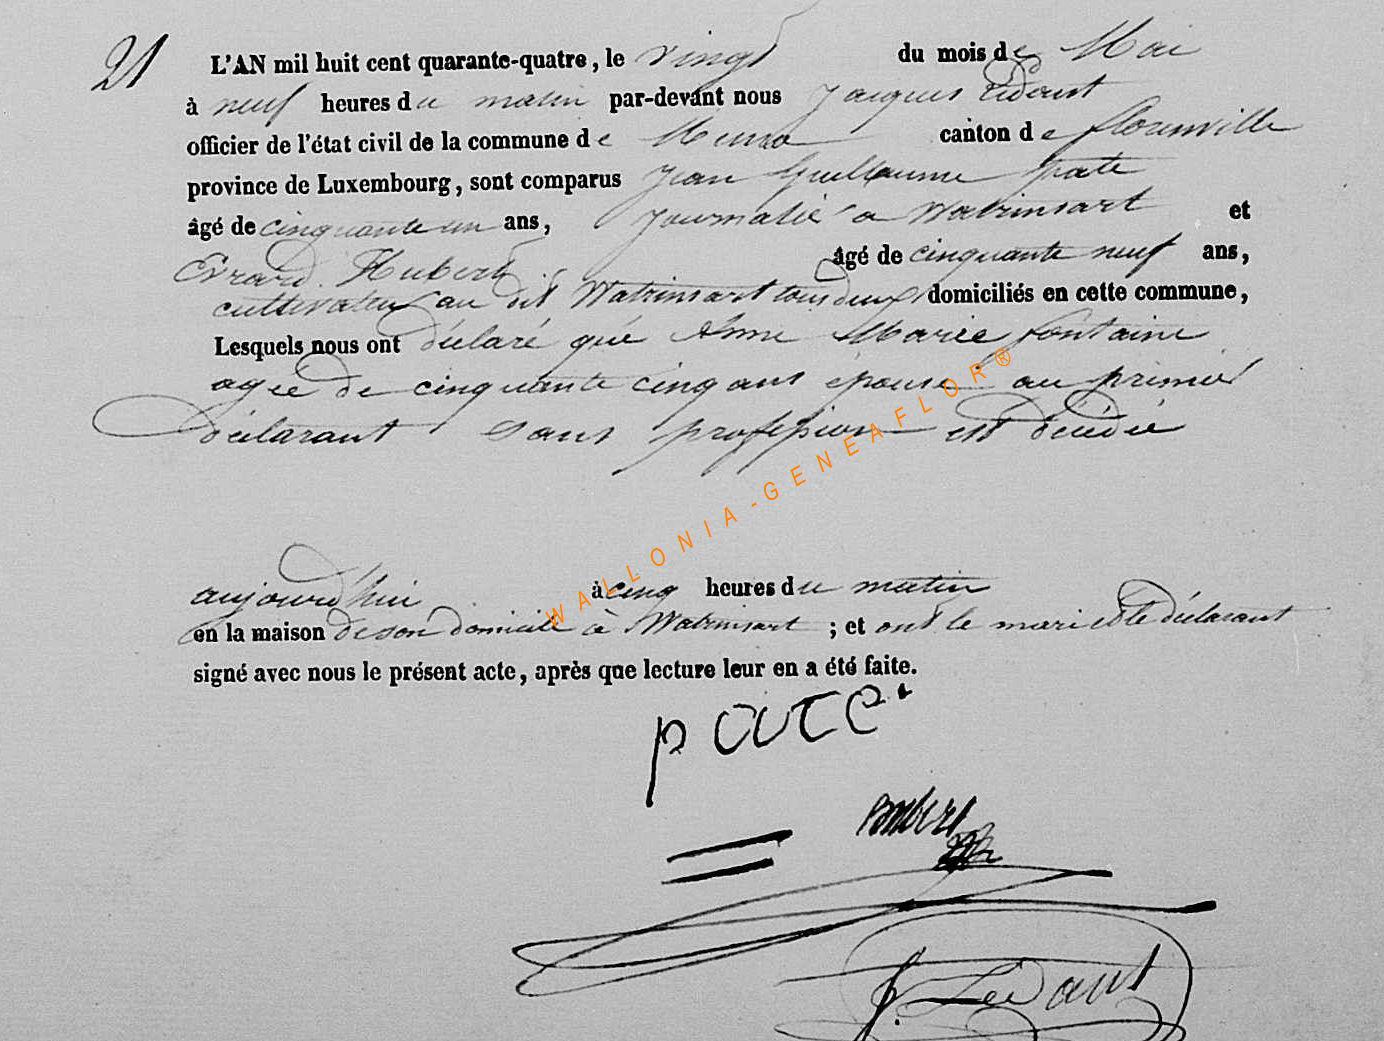 21
L'AN mil huit cent quarante-quatre, le vingt du mois de Mai
à neuf heures du matin par-devant nous Jacques Lédant
officier de l'état civil de la commune de Muno canton de florenville
province de Luxembourg, sont comparus Jean Guillaume pate
âgé de cinquante un ans, journalié a Watrinsart et
Evrard Hubert âgé de cinquante neuf ans,
cultivateur au dit Watrinsart tous deux domiciliés en cette commune,
Lesquels nous ont déclaré que Anne Marie fontaine
agée de cinquante cinq ans épouse au primié
déclarant sans profession est décédée
aujourd'hui à cinq heures du matin
en la maison de son domicile à Watrinsart ; et ont le mari et le déclarant
signé avec nous le présent acte, après que lecture leur en a été faite.
pate
J. Lédant
WALLONIA-GENEAFLOR®